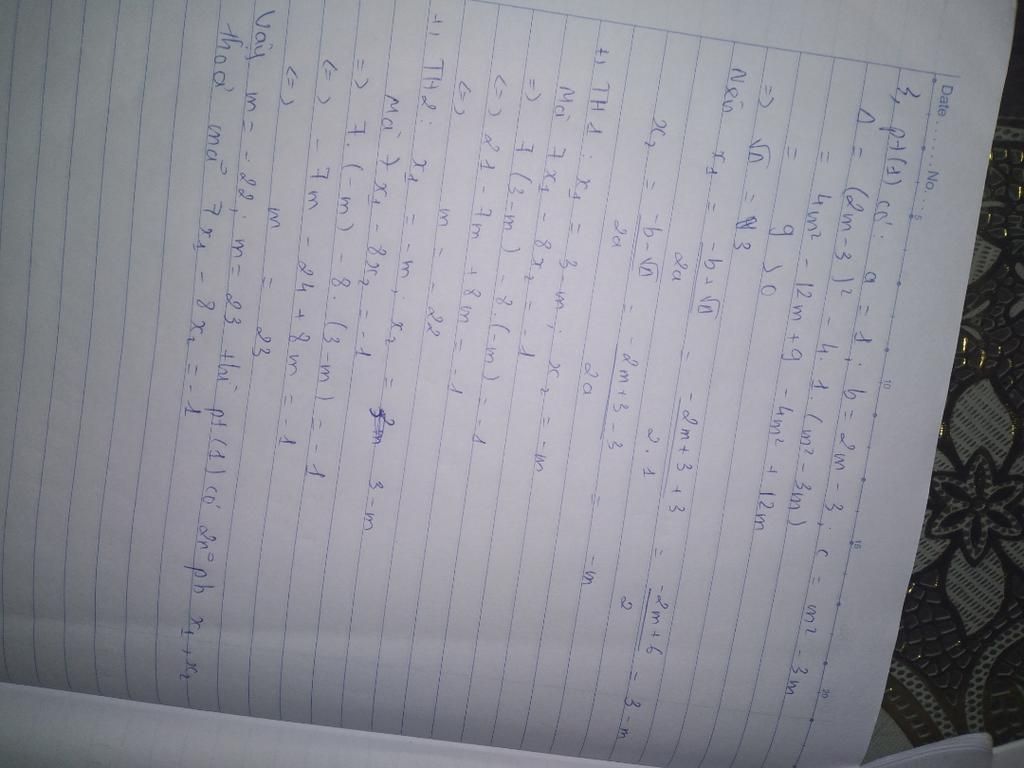 Date ........ No. 5 10 15 20
3, pt(1) có: a = 1; b = 2m - 3; c = m² - 3m
Δ = (2m - 3)² - 4.1.(m² - 3m)
= 4m² - 12m + 9 - 4m² + 12m
= 9 > 0
=> √Δ = 3
Nên x₁ = (-b + √Δ)/2a = (-2m + 3 + 3)/2.1 = (-2m + 6)/2 = 3 - m
x₂ = (-b - √Δ)/2a = (-2m + 3 - 3)/2a = -m
+) TH1: x₁ = 3 - m; x₂ = -m
Mà 7x₁ - 8x₂ = -1
=> 7(3 - m) - 8.(-m) = -1
<=> 21 - 7m + 8m = -1
<=> m = -22
+) TH2: x₁ = -m; x₂ = 3 - m
Mà 7x₁ - 8x₂ = -1
=> 7.(-m) - 8.(3 - m) = -1
<=> -7m - 24 + 8m = -1
<=> m = 23
Vậy m = -22; m = 23 thì pt(1) có 2n⁰ pb x₁, x₂
thoả mãn 7x₁ - 8x₂ = -1